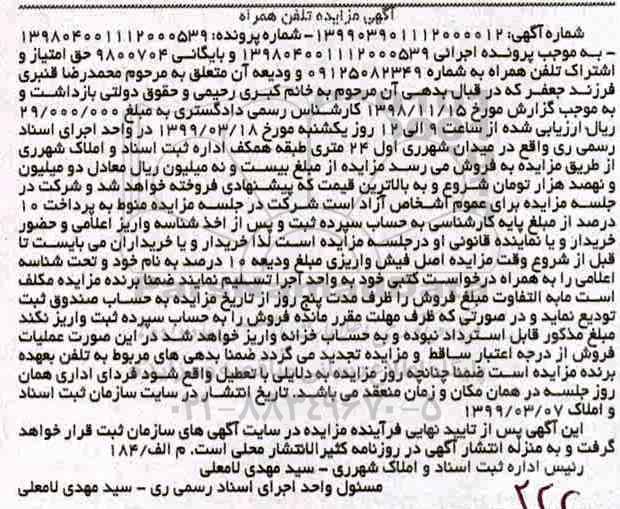 آگهی مزایده تلفن همراه
شماره آگهی: ۱۳۹۹۰۳۹۰۱۱۱۲۰۰۰۰۱۲ - شماره پرونده: ۱۳۹۸۰۴۰۰۱۱۱۲۰۰۰۵۳۹
- به موجب پرونده اجرائی ۱۳۹۸۰۴۰۰۱۱۱۲۰۰۰۵۳۹ و بایگانی ۹۸۰۰۷۰۴ حق امتیاز و
اشتراک تلفن همراه به شماره ۰۹۱۲۵۰۸۲۳۴۹ و ودیعه آن متعلق به مرحوم محمدرضا قنبری
فرزند جعفر که در قبال بدهی آن مرحوم به خانم کبری رحیمی و حقوق دولتی بازداشت و
به موجب گزارش مورخ ۱۳۹۸/۱۱/۱۵ کارشناس رسمی دادگستری به مبلغ ۲۹/۰۰۰/۰۰۰
ریال ارزیابی شده از ساعت ۹ الی ۱۲ روز یکشنبه مورخ ۱۳۹۹/۰۳/۱۸ در واحد اجرای اسناد
رسمی ری واقع در میدان شهرری اول ۲۴ متری طبقه همکف اداره ثبت اسناد و املاک شهرری
از طریق مزایده به فروش می رسد مزایده از مبلغ بیست و نه میلیون ریال معادل دو میلیون
و نهصد هزار تومان شروع و به بالاترین قیمت که پیشنهادی فروخته خواهد شد و شرکت در
جلسه مزایده برای عموم اشخاص آزاد است شرکت در جلسه مزایده منوط به پرداخت ۱۰
درصد از مبلغ پایه کارشناسی به حساب سپرده ثبت و پس از اخذ شناسه واریز اعلامی و حضور
خریدار و یا نماینده قانونی او درجلسه مزایده است لذا خریدار و یا خریداران می بایست تا
قبل از شروع وقت مزایده اصل فیش واریزی مبلغ ودیعه ۱۰ درصد به نام خود و تحت شناسه
اعلامی را به همراه درخواست کتبی خود به واحد اجرا تسلیم نمایند ضمنا برنده مزایده مکلف
است مابه التفاوت مبلغ فروش را ظرف مدت پنج روز از تاریخ مزایده به حساب صندوق ثبت
تودیع نماید و در صورتی که ظرف مهلت مقرر مانده فروش را به حساب سپرده ثبت واریز نکند
مبلغ مذکور قابل استرداد نبوده و به حساب خزانه واریز خواهد شد در این صورت عملیات
فروش از درجه اعتبار ساقط و مزایده تجدید می گردد ضمنا بدهی های مربوط به تلفن بعهده
برنده مزایده است ضمنا چنانچه روز مزایده به دلایلی با تعطیل واقع شود فردای اداری همان
روز جلسه در همان مکان و زمان منعقد می باشد. تاریخ انتشار در سایت سازمان ثبت اسناد
و املاک ۱۳۹۹/۰۳/۰۷
این آگهی پس از تایید نهایی فرآینده مزایده در سایت آگهی های سازمان ثبت قرار خواهد
گرفت و به منزله انتشار آگهی در روزنامه کثیرالانتشار محلی است. م الف/۱۸۴
رئیس اداره ثبت اسناد و املاک شهرری - سید مهدی لامعلی
مسئول واحد اجرای اسناد رسمی ری - سید مهدی لامعلی
۰۲۱-۸۸۳۴۹۶۷۰-۵